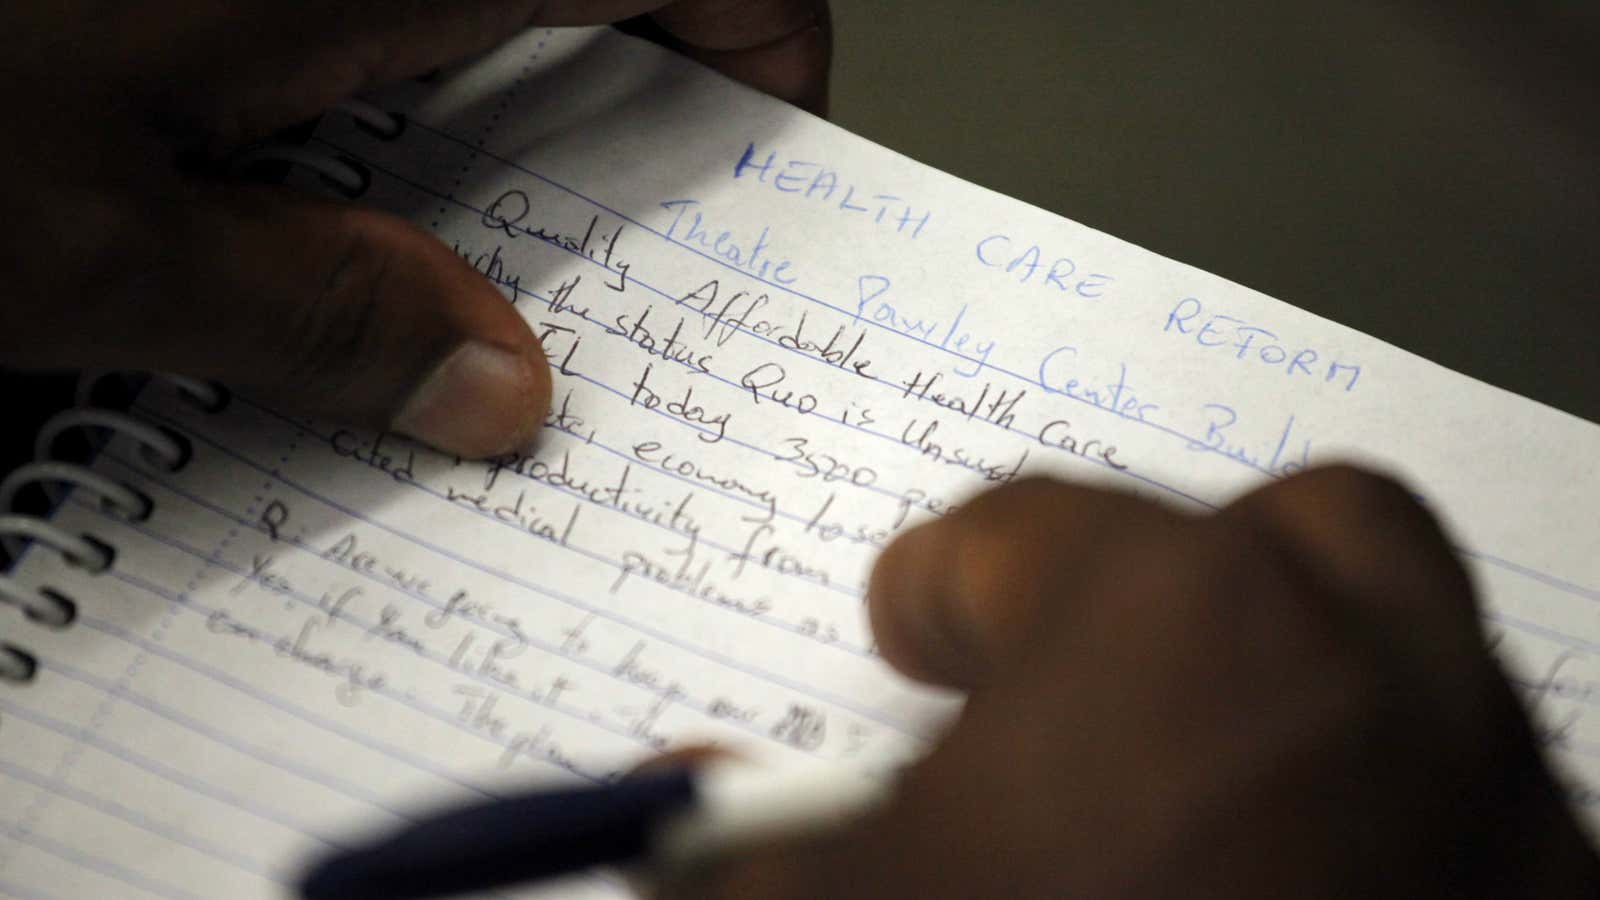 HEALTH CARE REFORM
Theatre Pawley Center Build
Quality Affordable Health Care
why the status Quo is Unsust
IL today 3500 per
economy loses
productivity from
cited medical problems as
Q: Are we going to keep our
Yes, if you like it. The
can change. The plan
for